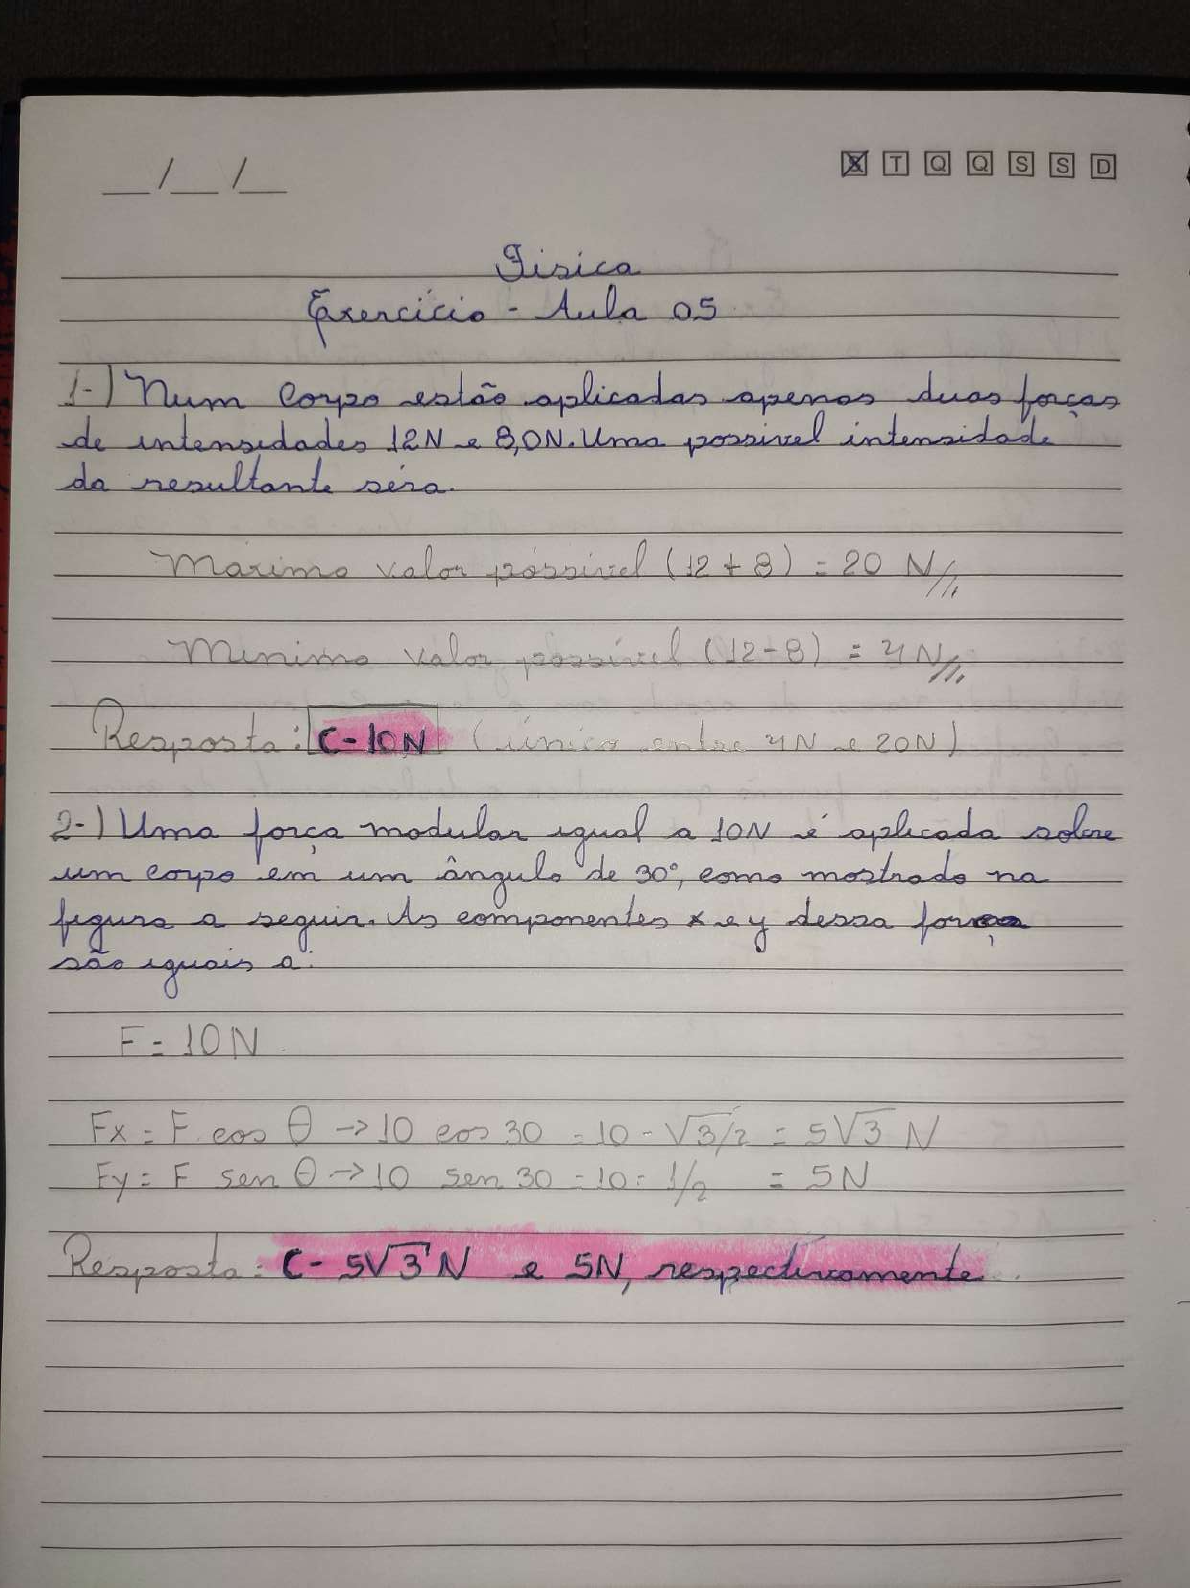 __/__/__
S T Q Q S S D
Física
Exercício - Aula 05
1-) Num corpo estão aplicadas apenas duas forças
de intensidades 12N e 8,0N. Uma possível intensidade
da resultante séra.
Máximo valor possível (12 + 8) = 20 N//.
Mínimo valor possível (12-8) = 4N//.
Resposta: C- 10N (único entre 4N e 20N)
2-) Uma força modular igual a 10N é aplicada sobre
um corpo em um ângulo de 30°, como mostrado na
figura a seguir. As componentes x e y dessa força
são iguais a:
F = 10N
Fx = F cos θ -> 10 cos 30 = 10 - √3/2 = 5√3 N
Fy = F sen θ -> 10 sen 30 = 10 = 1/2 = 5N
Resposta: C- 5√3 N e 5N, respectivamente.